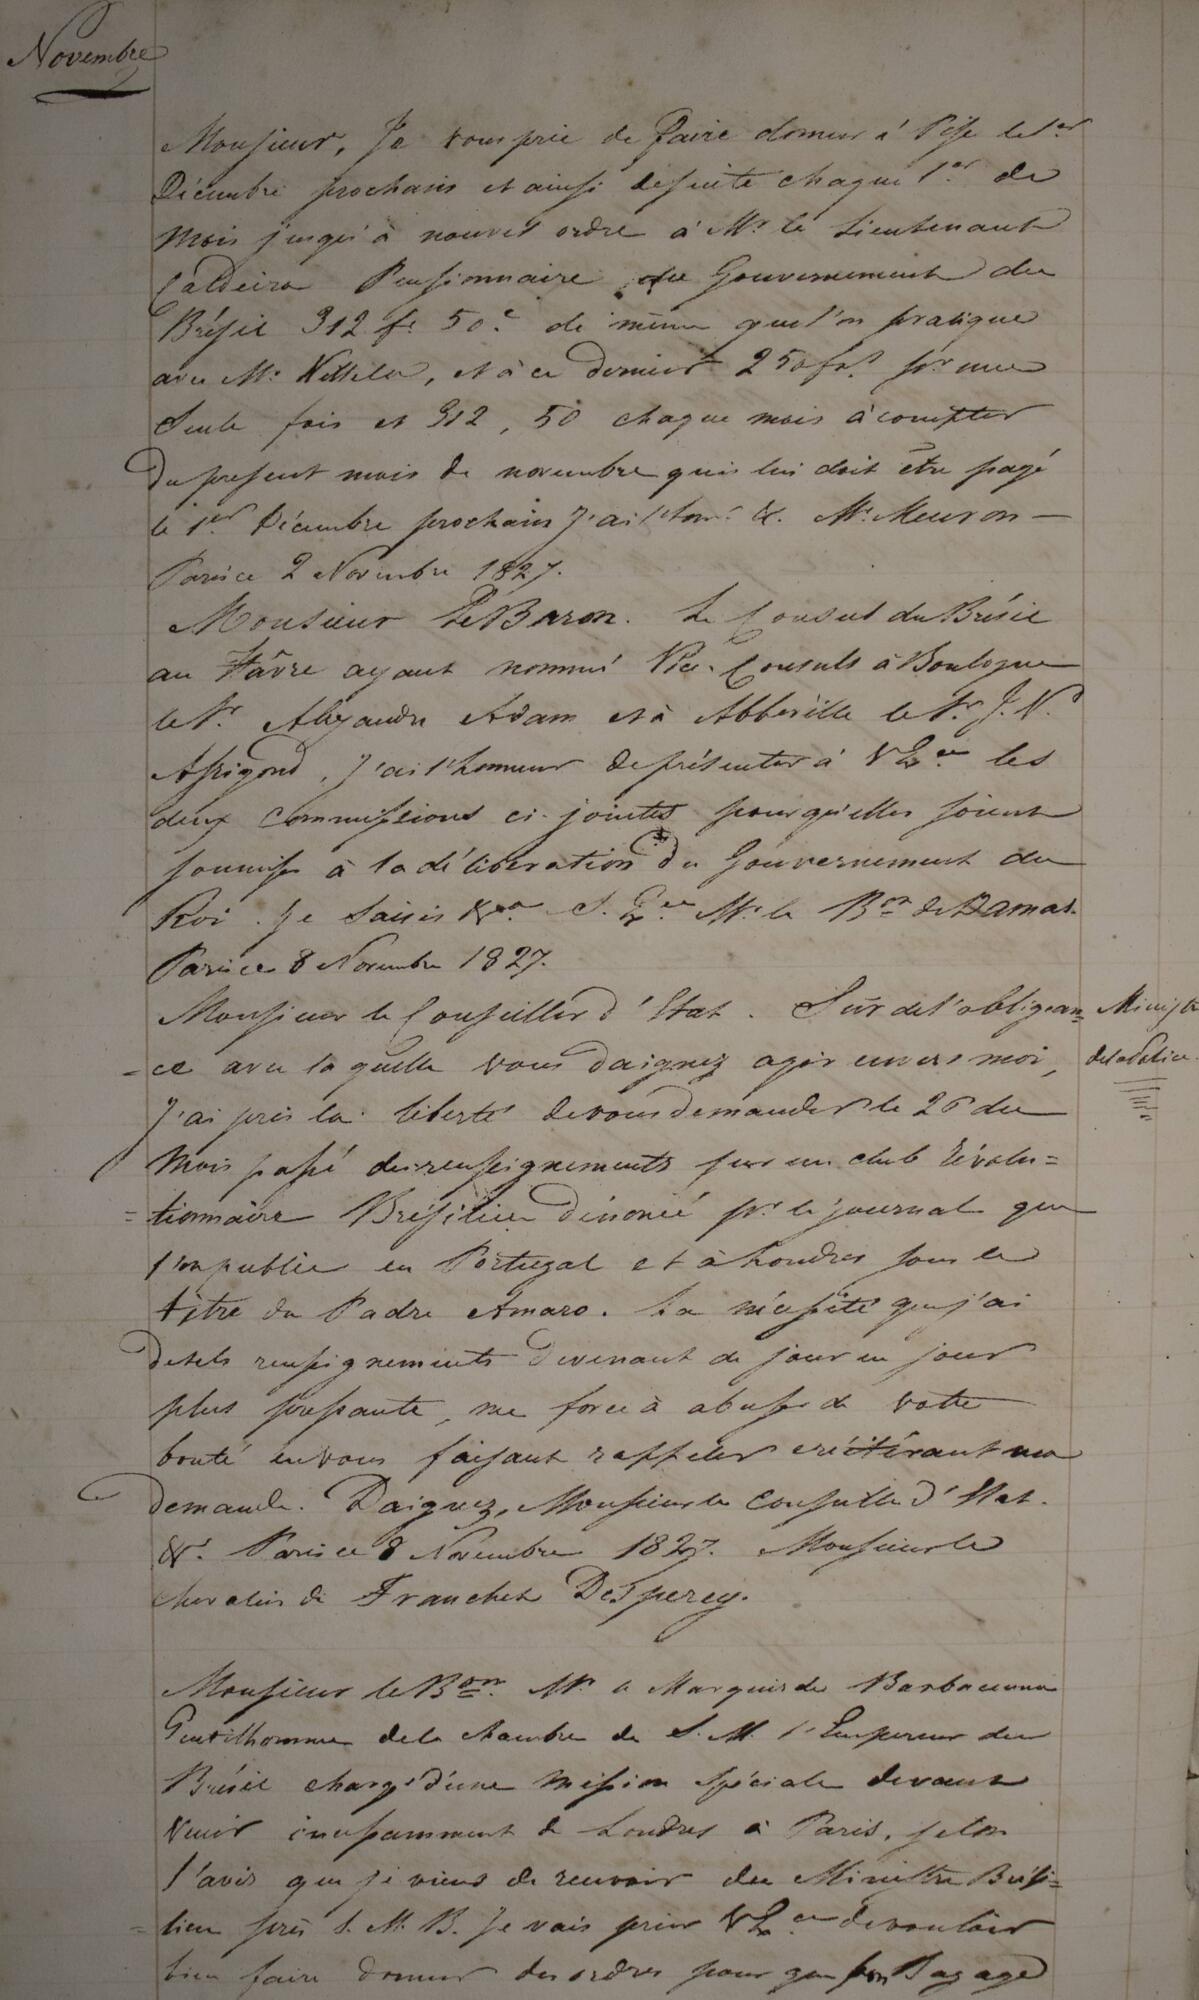 Novembre
Monsieur, Je vous prie de faire donner à Pise le 1er
Décembre prochain et ainsi desuite chaque 1er de
Mois jusqu'à nouvel ordre à Mr. le Lieutenant
Caldeira Pensionnaire du Gouvernement du
Brésil 312 f. 50 c. de même que l'on pratique
avec Mr. , et à ce dernier 250 frs. pr. une
Seule fois et 312, 50 chaque mois à compter
du present mois de novembre qui lui doit être payé
le 1er Décembre prochain J'ai l'hon. &. Mr. Meuron —
Paris ce 2 Novembre 1827.
Monsieur Le Baron. Le Consul du Brésil
au Hâvre ayant nommé Vice-Consuls à Boulogne
le Sr. Alexandre Adam et à Abbeville le Sr. J. V.
, J'ai l'honneur de présenter à V Exce les
deux Commissions ci-jointes pour qu'elles soient
soumises à la délibération du Gouvernement du
Roi. Je saisis &a S. Exce Mr. le Bon de Damas.
Paris ce 8 Novembre 1827.
Monsieur le Conseiller d'Etat. Sûr de l'obligean=
Ministre
=ce avec laquelle vous daignez agir envers moi,
de la Police.
J'ai pris la liberté de vous demander le 26 du
Mois passé des renseignements sur un club révolu=
=tionnaire Brésilien dénoncé pr. le journal que
l'on publie en Portugal et à Londres sous le
titre du Padre Amaro. La nécessité que j'ai
de tels renseignements devenant de jour en jour
plus pressante, me force à abuser de votre
bonté en vous faisant rappeler et réitérant ma
demande. Daignez, Monsieur le Conseiller d'Etat.
&. Paris ce 8 Novembre 1827. Monsieur le
Chevalier de Franchet Desperey.
Monsieur le Bon. Mr. le Marquis de Barbacena
Gentilhomme de la Chambre de S. M. l'Empereur du
Brésil chargé d'une mission Spéciale devant
venir incessamment de Londres à Paris, selon
l'avis que je viens de recevoir du Ministre Brési=
=lien près S. M. B. Je vais prier V Exce de vouloir
bien faire donner des ordres pour que son Bagage